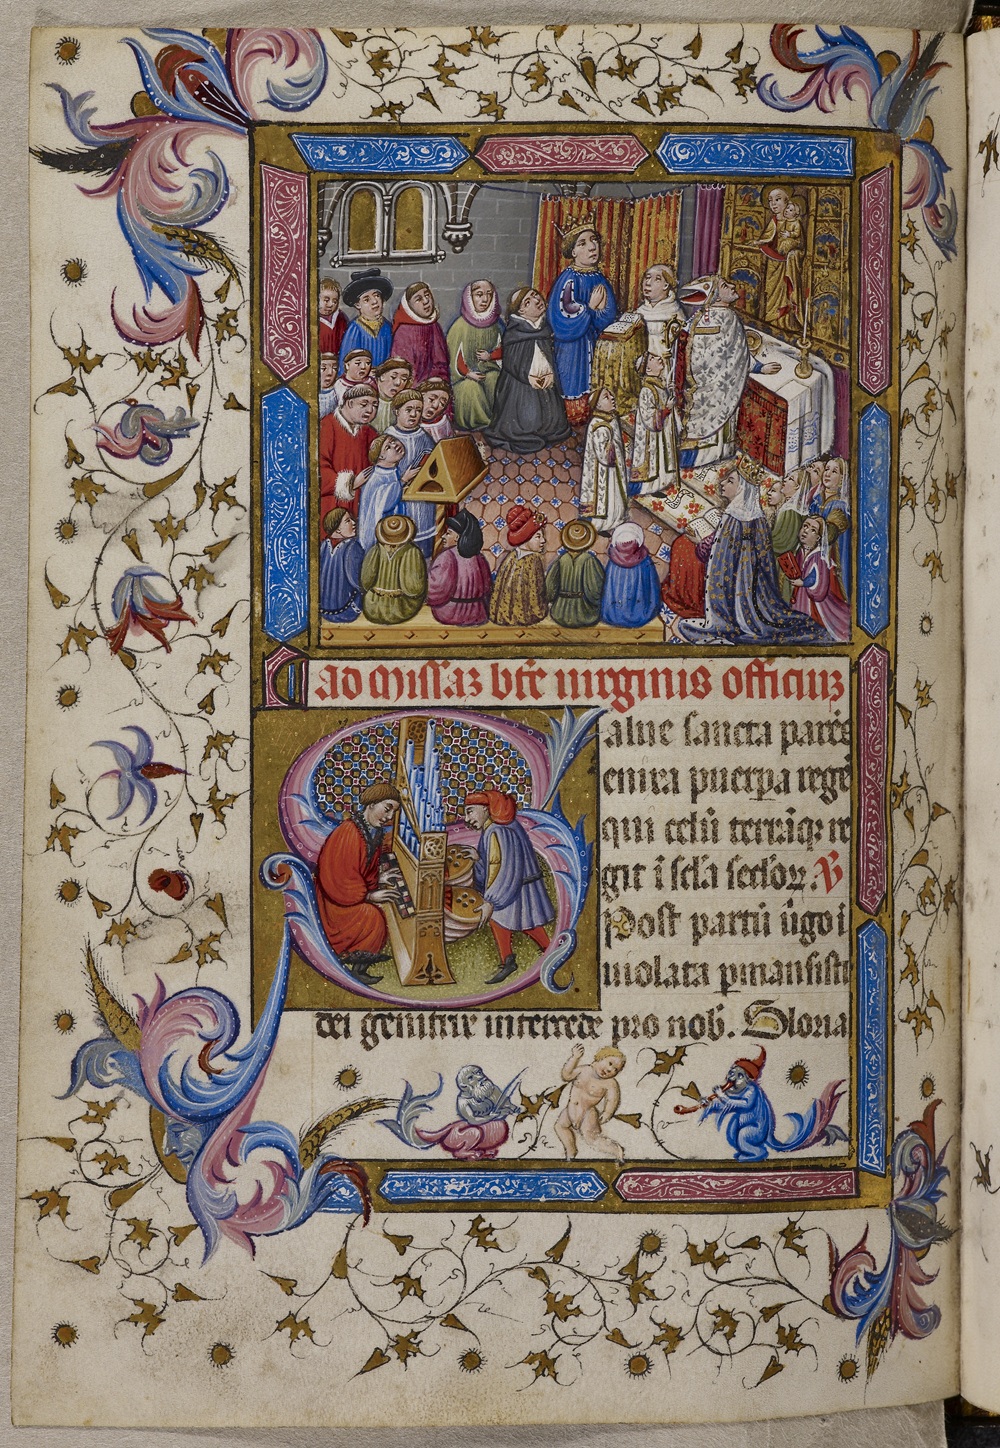 ad missaz btē uirginis officiuz
Salue sancta parēs
enixa puerpa regē
qui celū terrāq; re
git ī sclā sclorꝝ. V
Post partū ūgo ī
uiolata pmansisti
dei genitrix intercede pro nob. Gloria